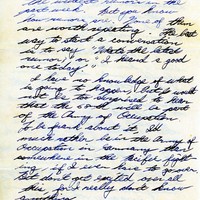 But you know
how rumors are. None of them
are worth repeating. The best
way to start a conversation
is to say "What's the latest
rumor," or "I heard a good
one today."
I have no knowledge of what
is going to happen, but would
not be surprised to hear
that the outfit will be part
of the Army of Occupation
To be frank about it, I'd
much rather be in the Army of
Occupation in Germany than
somewhere in the Pacific fight-
ing if I ever have to
But don't get excited over all
this for I really don't know
anything